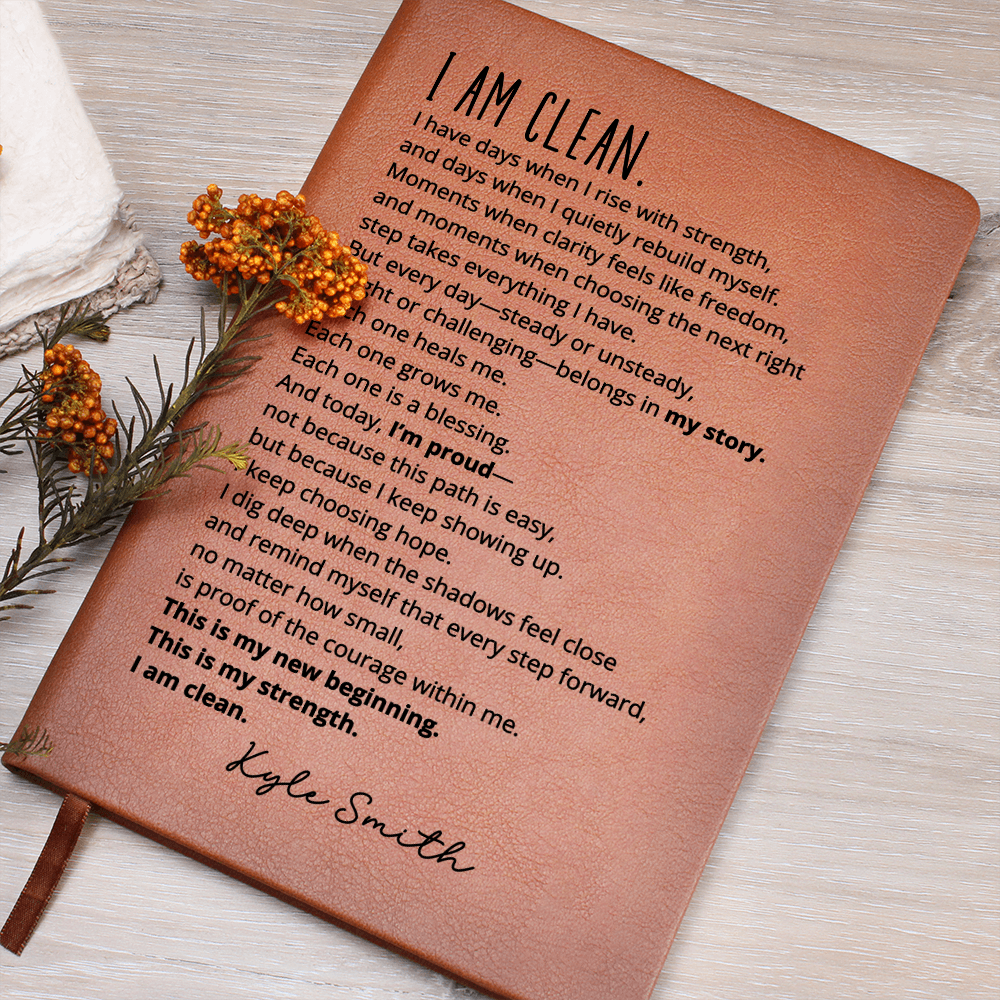 I AM CLEAN.
I have days when I rise with strength,
and days when I quietly rebuild myself.
Moments when clarity feels like freedom,
and moments when choosing the next right
step takes everything I have.
But every day—steady or unsteady,
ght or challenging—belongs in my story.
ch one heals me.
Each one grows me.
Each one is a blessing.
And today, I'm proud—
not because this path is easy,
but because I keep showing up.
keep choosing hope.
I dig deep when the shadows feel close
and remind myself that every step forward,
no matter how small,
is proof of the courage within me.
This is my new beginning.
This is my strength.
I am clean.
Kyle Smith